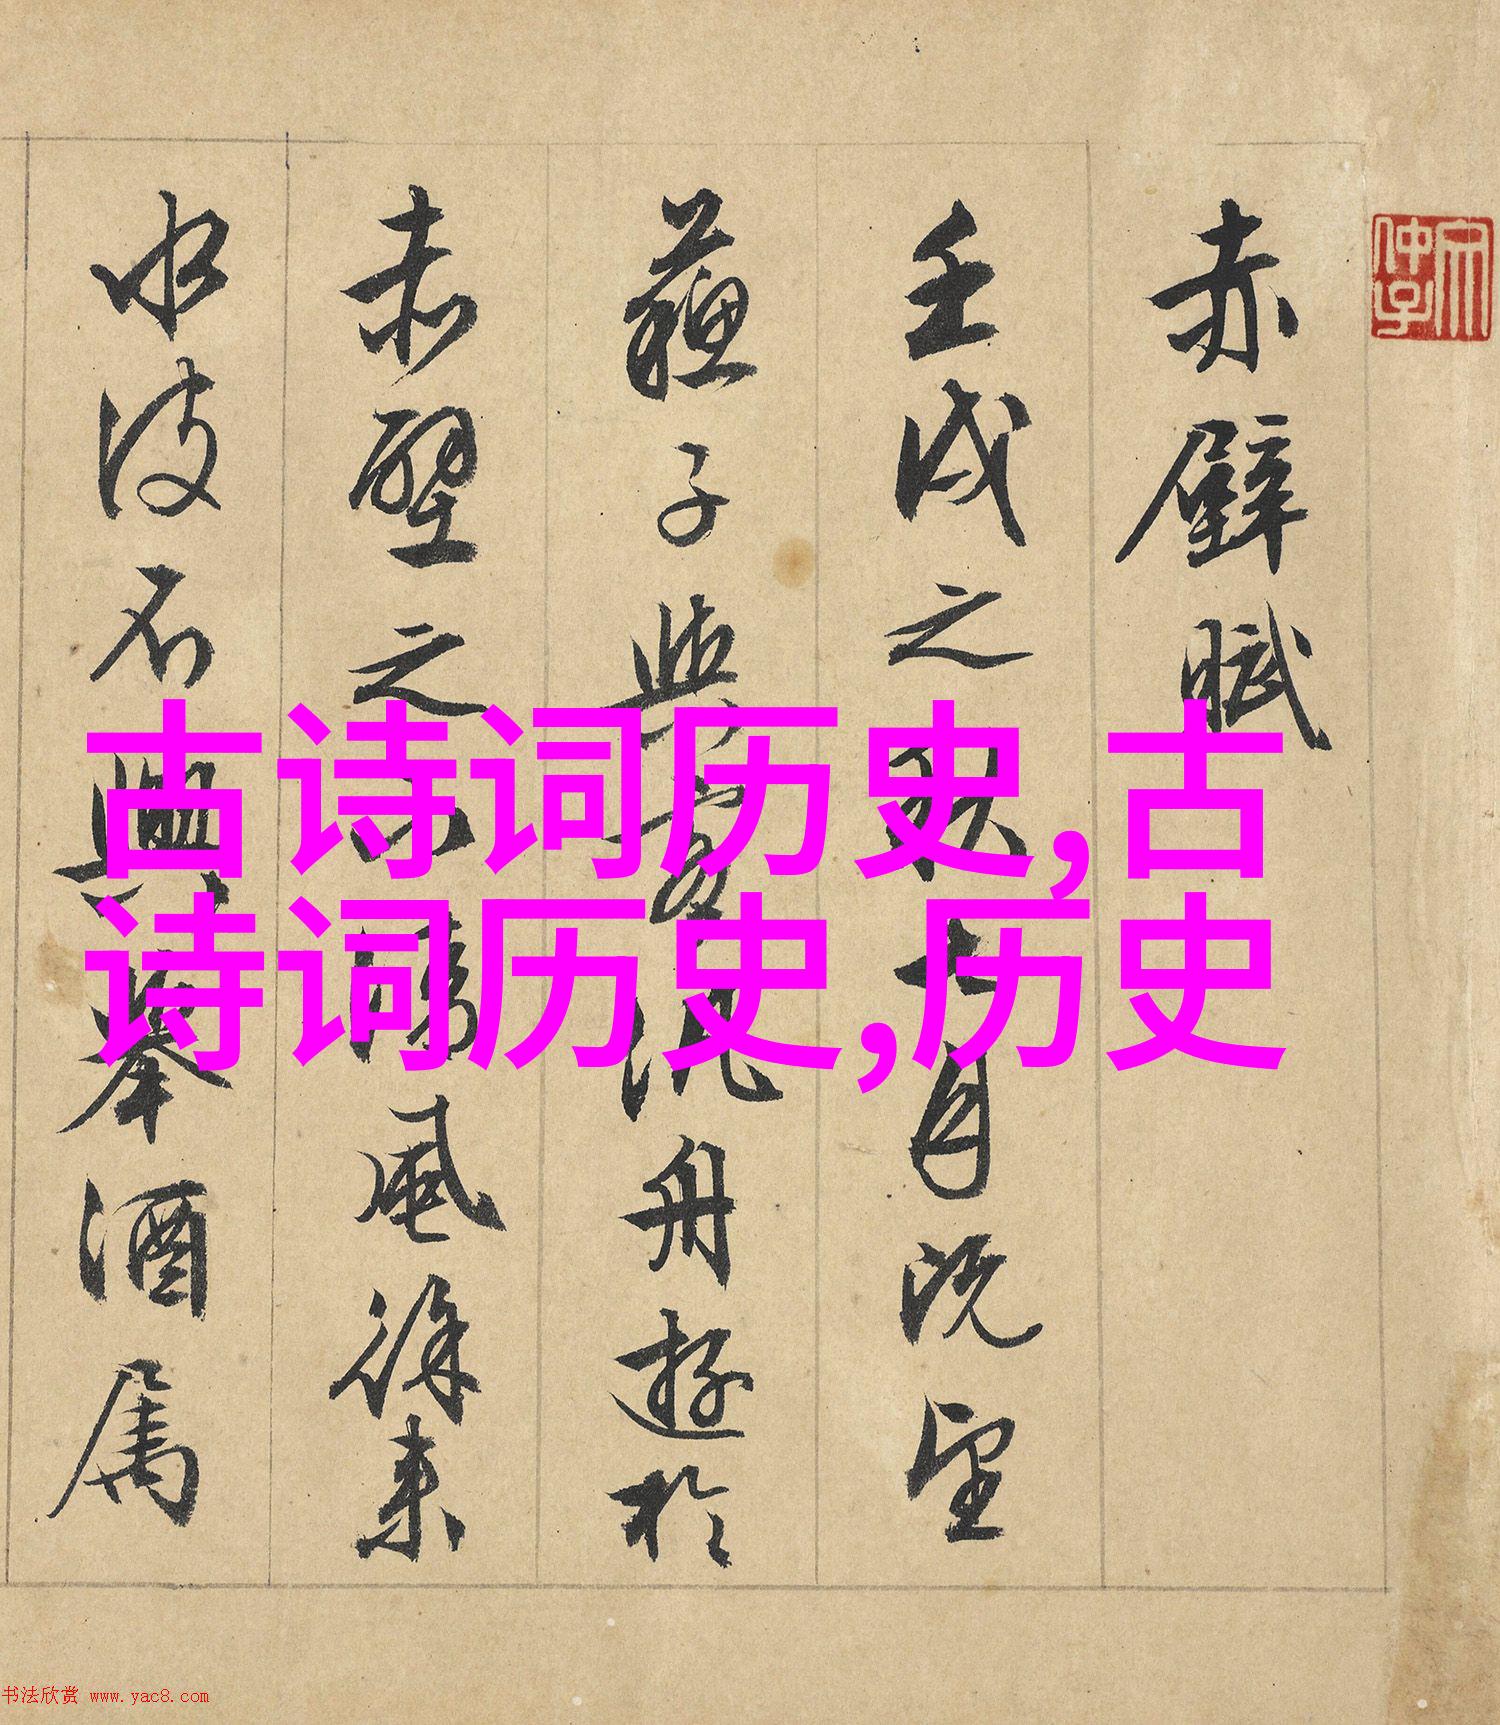 赤壁賦
壬戌之秋七月既望
蘇子與客泛舟遊於
赤壁之下清風徐来
水波不興舉酒属
古诗词历史,古
诗词历史,历史
书法欣赏 www.yac8.com